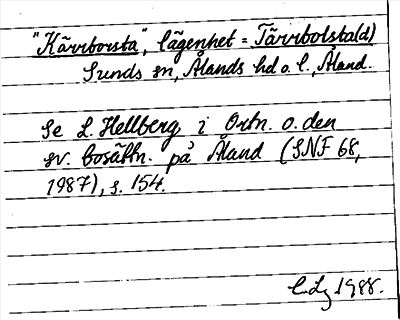 "Kärrborsta", lägenhet = Tärrbolsta(d)
Sunds sn, Ålands hd o. l., Åland.
Se L. Hellberg i Ortn. o. den
sv. bosättn. på Åland (SNF 68,
1987), s. 154.
1988.